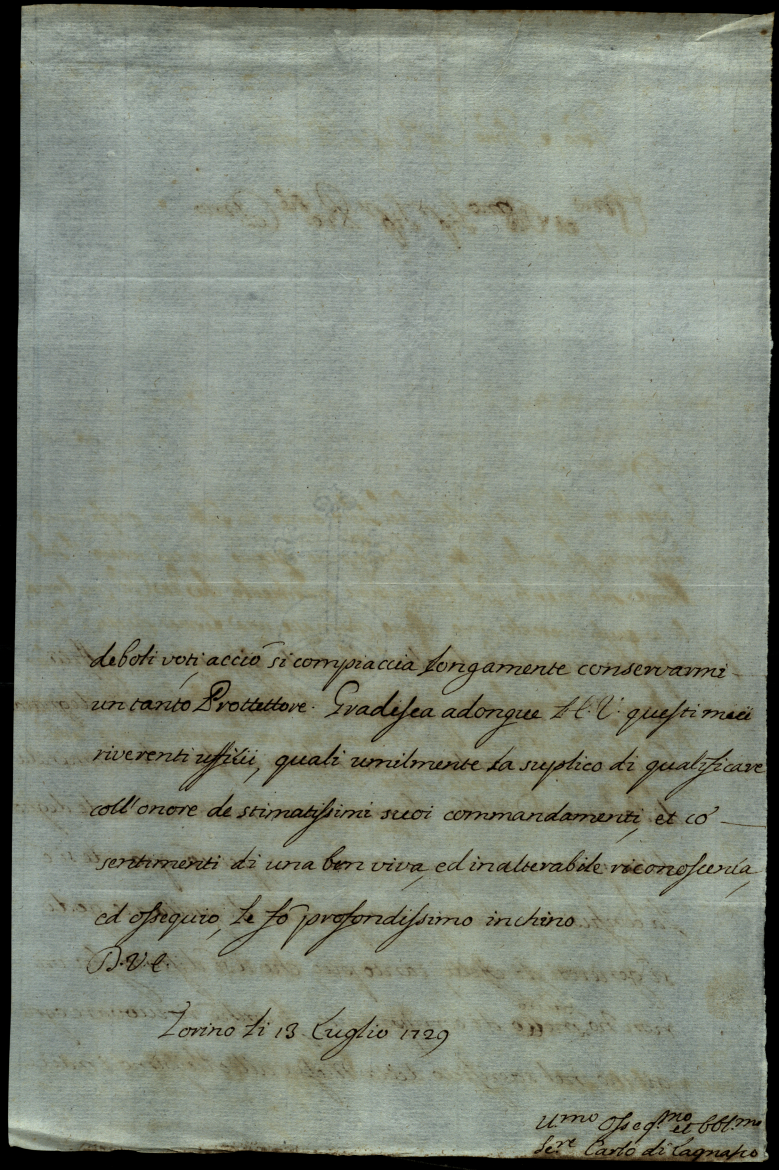 deboli voti, acciò si compiaccia longamente conservarmi
un tanto Prottettore. Gradisca adongue L'E. V. questi miei
riverenti uffitii, quali umilmente La suplico di qualificare
coll'onore de stimatissimi suoi commandamenti, et cõ
sentimenti di una ben viva, ed inalterabile riconoscenza,
ed ossequio, Le fò profondissimo inchino
D. V. E.
Torino Li 13 Luglio 1729
U.mo Osseq.mo et Obl.mo
Se.re Carlo di